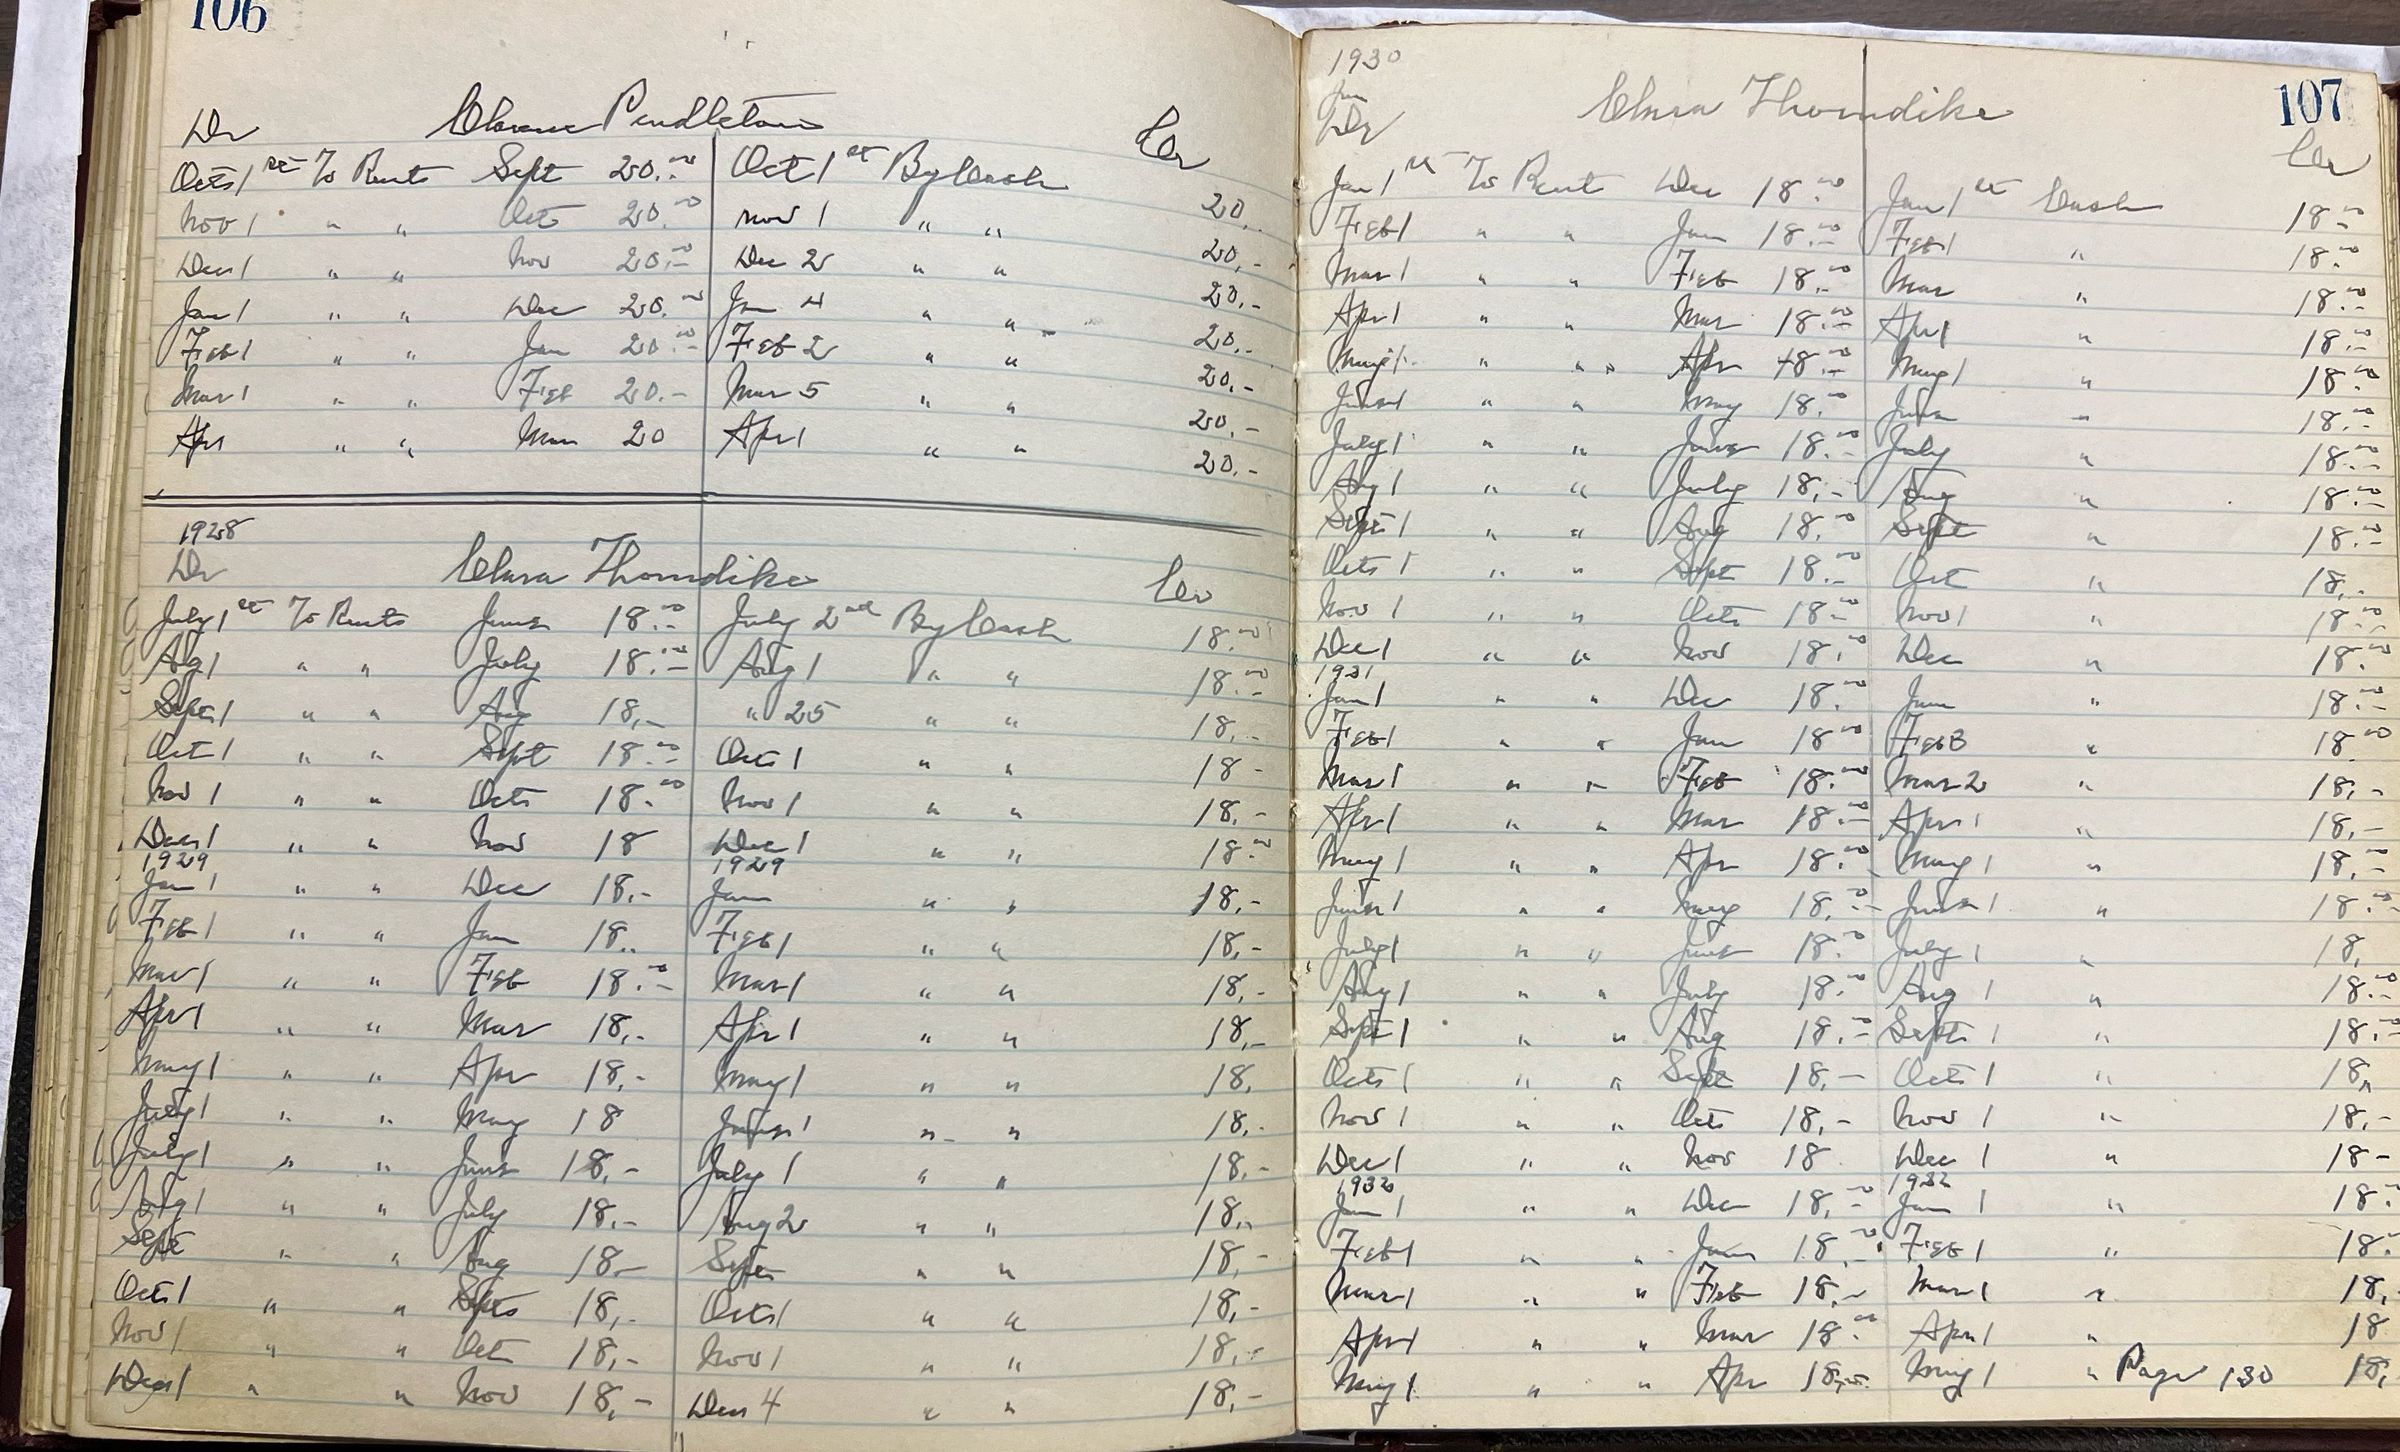 106
Dr Clarence Pendleton Cr
Oct 1st To Rent Sept 20.00 Oct 1st By Cash 20.
Nov 1 " " Oct 20.00 Nov 1 " " 20.-
Dec 1 " " Nov 20.00 Dec 2 " " 20.-
Jan 1 " " Dec 20.00 Jan 4 " " 20.-
Feb 1 " " Jan 20.00 Feb 2 " " 20.-
Mar 1 " " Feb 20.- Mar 5 " " 20.-
Apr " " Mar 20 Apr 1 " " 20.-
1928
Dr Clara Thorndike Cr
July 1st To Rent June 18.00 July 2nd By Cash 18.00
Ag 1 " " July 18.00 Aug 1 " " 18.00
Sept 1 " " Aug 18.- " 25 " " 18.-
Oct 1 " " Sept 18.00 Oct 1 " " 18-
Nov 1 " " Oct 18.00 Nov 1 " " 18.-
Dec 1 " " Nov 18 Dec 1 " " 18.00
1929 1929
Jan 1 " " Dec 18.- Jan " " 18.-
Feb 1 " " Jan 18.. Feb 1 " " 18.-
Mar 1 " " Feb 18.00 Mar 1 " " 18.-
Apr 1 " " Mar 18.- Apr 1 " " 18.-
May 1 " " Apr 18.- May 1 " " 18.
July 1 " " May 18 June 1 " " 18.-
July 1 " " June 18.- July 1 " " 18.-
Aug 1 " " July 18.- Aug 2 " " 18..
Sept " " Aug 18.- Sept " " 18.-
Oct 1 " " Sept 18.- Oct 1 " " 18.-
Nov 1 " " Oct 18.- Nov 1 " " 18.-
Dec 1 " " Nov 18.- Dec 4 " " 18.-
1930
Jan
107
Dr Clara Thorndike Cr
Jan 1st To Rent Dec 18.00 Jan 1st Cash 18.00
Feb 1 " " Jan 18.00 Feb 1 " 18.00
Mar 1 " " Feb 18.00 Mar " 18.00
Apr 1 " " Mar 18.00 Apr 1 " 18.00
May 1 " " Apr 18.00 May 1 " 18.00
June 1 " " May 18.00 June " 18.00
July 1 " " June 18.00 July " 18.00
Aug 1 " " July 18.- Aug " 18.00
Sept 1 " " Aug 18.00 Sept " 18.00
Oct 1 " " Sept 18.00 Oct " 18..
Nov 1 " " Oct 18.00 Nov 1 " 18.00
Dec 1 " " Nov 18.00 Dec " 18.00
1931
Jan 1 " " Dec 18.00 Jan " 18.00
Feb 1 " " Jan 18.00 Feb 3 " 18.00
Mar 1 " " Feb 18.00 Mar 2 " 18.-
Apr 1 " " Mar 18.00 Apr 1 " 18.-
May 1 " " Apr 18.00 May 1 " 18.-
June 1 " " May 18.00 June 1 " 18.00
July 1 " " June 18.00 July 1 " 18.
Aug 1 " " July 18.00 Aug 1 " 18.00
Sept 1 " " Aug 18.00 Sept 1 " 18.00
Oct 1 " " Sept 18.- Oct 1 " 18.
Nov 1 " " Oct 18.- Nov 1 " 18.-
Dec 1 " " Nov 18 Dec 1 " 18-
1932 1932
Jan 1 " " Dec 18.00 Jan 1 " 18.
Feb 1 " " Jan 18.00 Feb 1 " 18.
Mar 1 " " Feb 18.- Mar 1 " 18.
Apr 1 " " Mar 18.00 Apr 1 " 18
May 1 " " Apr 18.00 May 1 " Page 130 18.